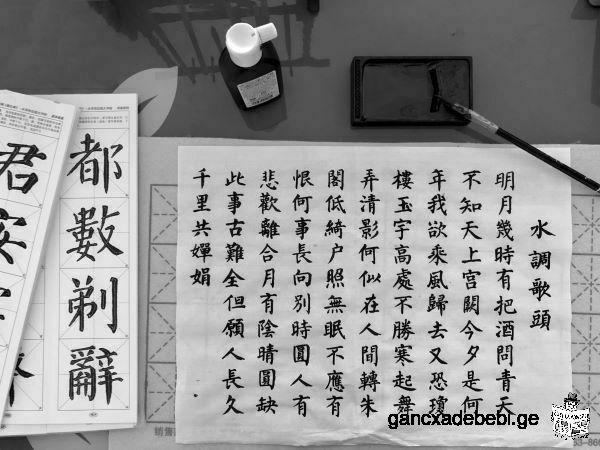 水調歌頭
明月幾時有把酒問青天
不知天上宮闕今夕是何
年我欲乘風歸去又恐瓊
樓玉宇高處不勝寒起舞
弄清影何似在人間轉朱
閣低綺户照無眠不應有
恨何事長向別時圓人有
悲歡離合月有陰晴圓缺
此事古難全但願人長久
千里共嬋娟
都數剃辭
君安
銷售
gancxadebebi.ge